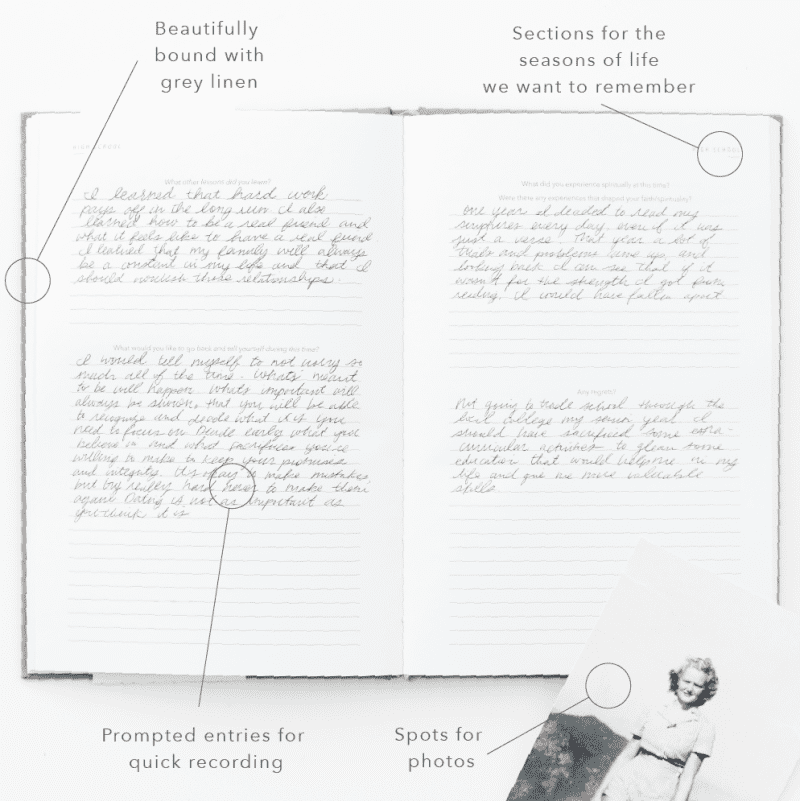 Beautifully
bound with
grey linen
Sections for the
seasons of life
we want to remember
What other lessons did you learn?
I learned that hard work
pays off in the long run. I also
learned how to be a real friend and
what it feels like to have a real friend
I learned that my family will always
be a constant in my life and that I
should nourish those relationships.
What would you like to go back and tell yourself during this time?
I would tell myself to not worry so
much all of the time. Whats meant
to be will happen. Whats important will
always be that you will be able
to recognize and decide what it is you
need to focus on. Decide early what you
believe in and what sacrifices you're
willing to make to keep your promises
and integrity. It's easy to make mistakes
but try really hard never to make them
again. Dating is not as important as
you think it is
What did you experience spiritually at this time?
Were there any experiences that shaped your faith/spirituality?
One year I decided to read my
scriptures every day, even if it was
just a verse. That year a lot of
trials and problems came up, and
looking back I can see that if it
wasn't for the strength I got from
reading, I would have fallen apart
Any regrets?
Not going to trade school through the
local college my senior year. I
should have sacrificed some extra-
curricular activities to glean some
education that would help me in my
life and give me more valuable
skills
Prompted entries for
quick recording
Spots for
photos